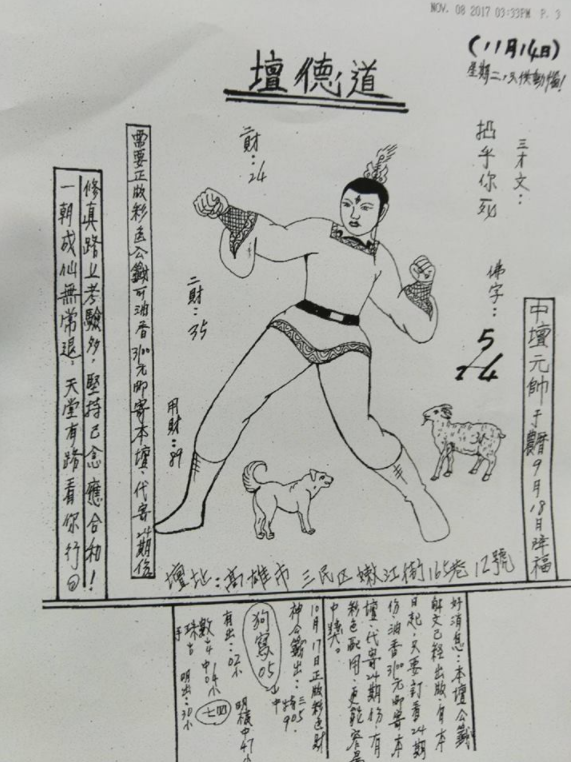 NOV. 08 2017 03:33PM P. 3
(11月14日)
道德壇
三才文：
挹乎你死
佛字：
5
24
中壇元帥于農曆9月18日降福
二財：24
二財：35
用財：89
需要正版彩色公籤可油香3100元郵寄本壇，代寄24期份
修真路上考驗多，堅持己念應合和！
一朝成仙無常退，天堂有路看你行
壇址：高雄市 三民区嫩江街165巷12號
好消息：本壇公籤
解文已經出版，自本
日起，只要訂看24期
份油香3100元郵寄本
壇，代寄24期份，有
彩色
中獎。
10月17日正版彩色財
神公籤出：
三05
905
狗寮05
中
有出：02小
明樣中47小
數
中04小
七四
明出：30小